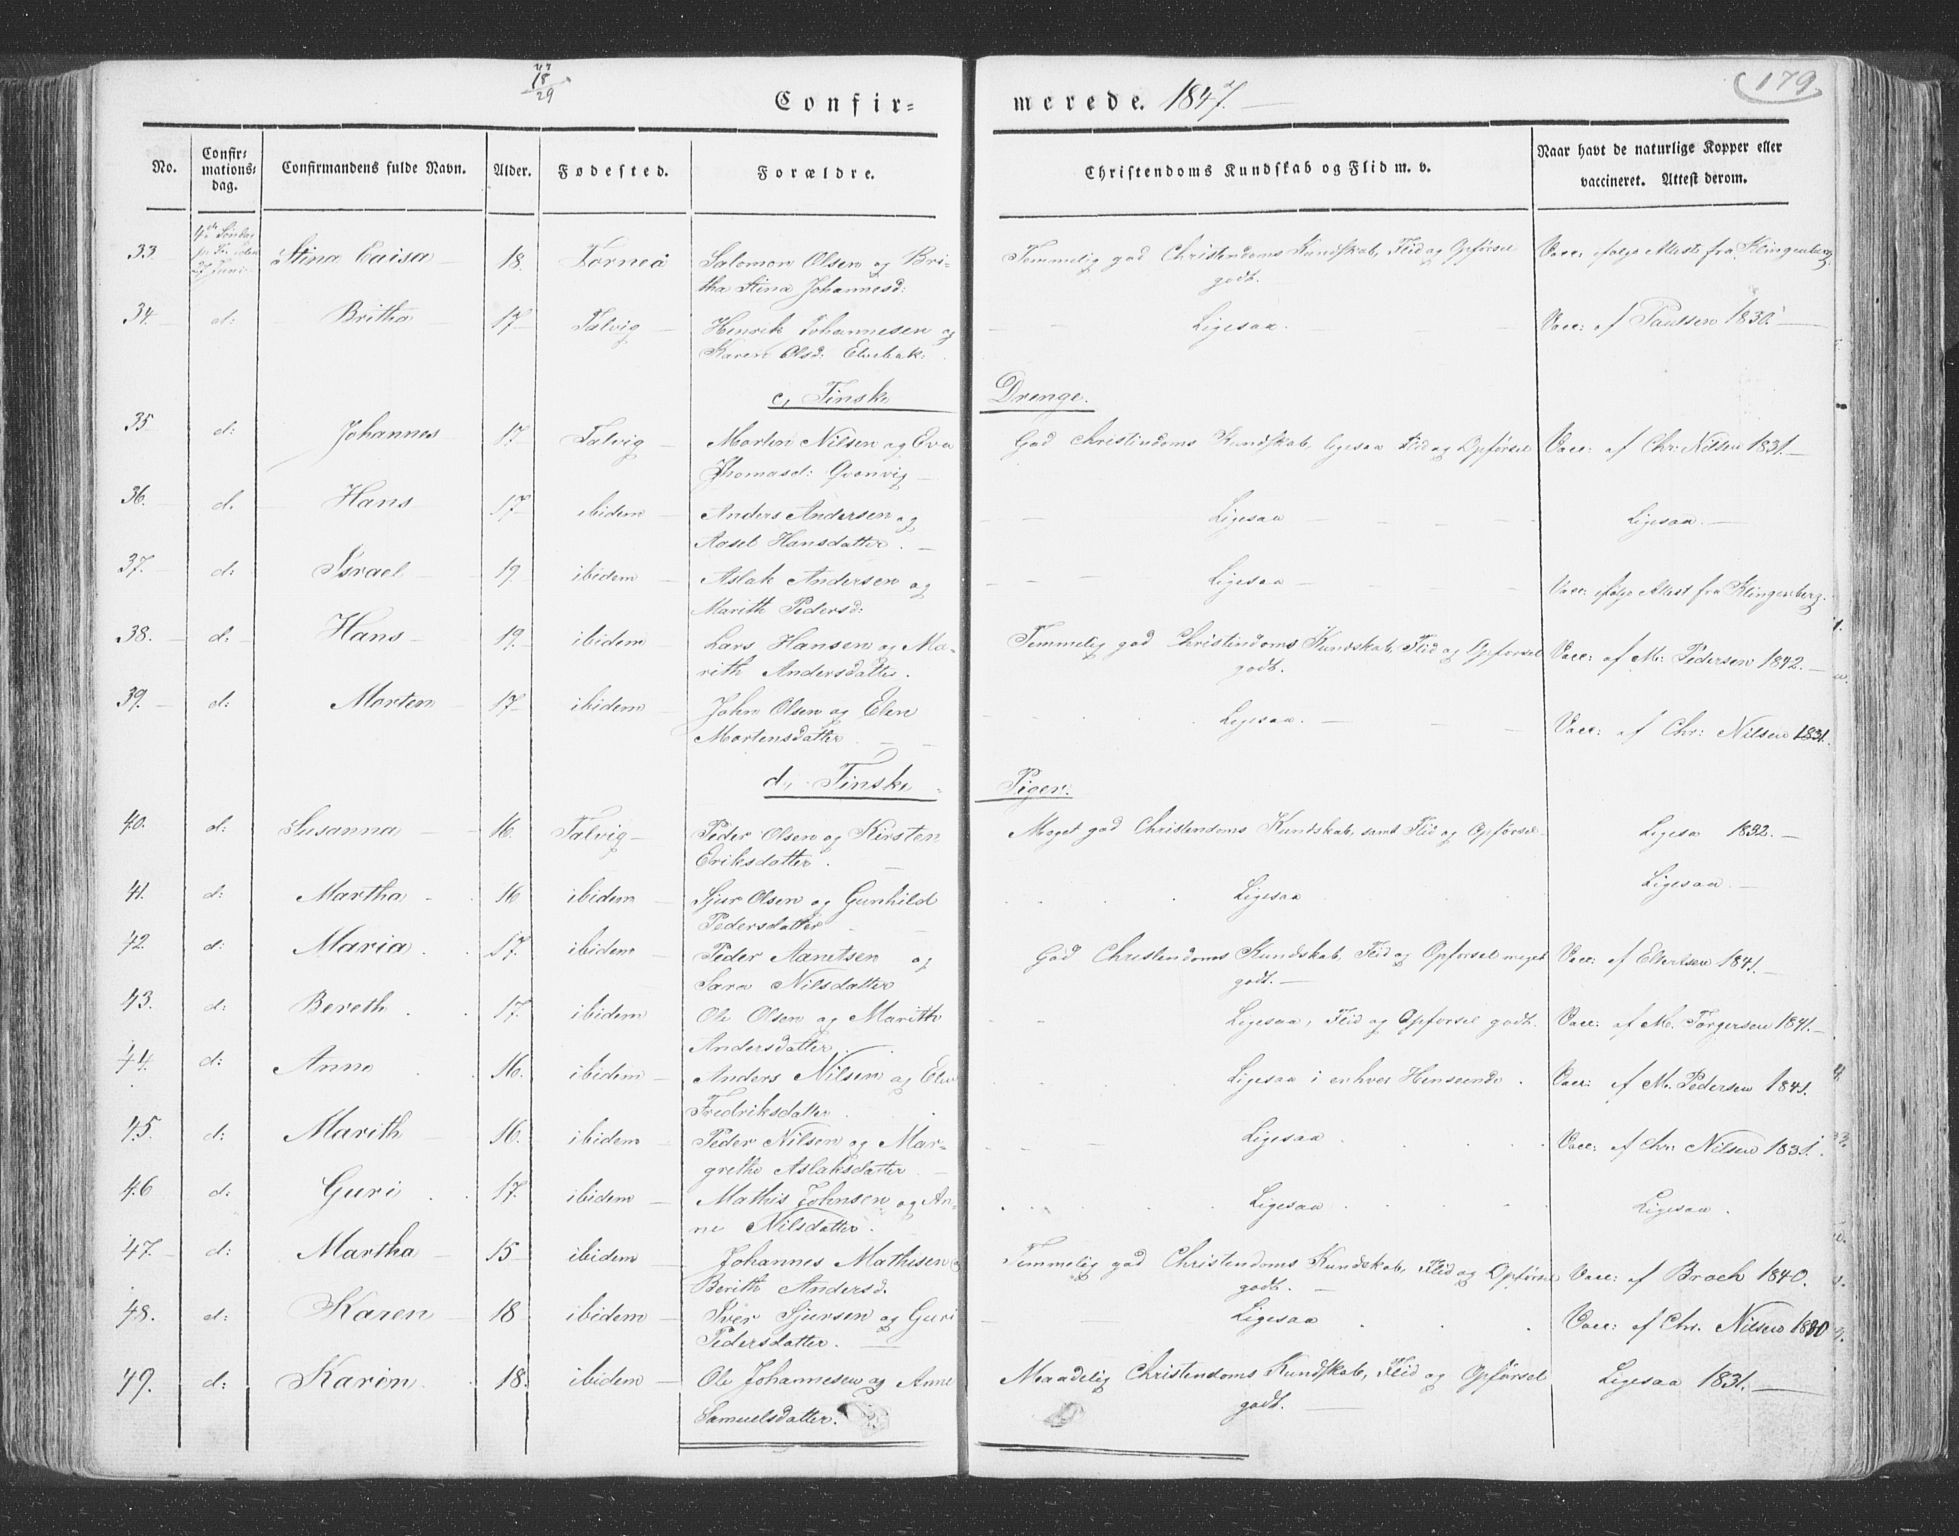 18
29
Confir= merede. 1847.
179.
No.
Confir=
mations=
dag.
Confirmandens fulde Navn.
Alder.
Fødested.
Forældre.
Christendoms Kundskab og Flid m. v.
Naar havt de naturlige Kopper eller
vaccineret. Attest derom.
33. Stina Caisa 18. Torneå Salomon Olsen og Bri- Temmelig god Christendoms Kundskab, Flid og Opførsel Vacc: ifølge Attest fra Klingenberg.
tha Stina Johannesd: godt.
34. d: Britha 17 Talvig Henrik Johannesen og Ligesaa. Vacc: af Paulsen 1830.
Karen Olsd: Elvebak:
c, Finske Drenge.
35 d: Johannes 17 Talvig Morten Nilsen og Eva God Christendoms Kundskab, ligesaa Flid og Opførsel Vacc: af Chr: Nilsen 1831.
Thomasd: Qvenvig
36. d. Hans 17 ibidem Anders Andersen og Ligesaa Ligesaa.
Aasel Hansdatter.
37. d: Israel 19 ibidem Aslak Andersen og Ligesaa Vacc: ifølge Attest fra Klingenberg.
Marith Pedersd:
38. d: Hans 19. ibidem Lars Hansen og Ma- Temmelig god Christendoms Kundskab, Flid og Opførsel Vacc: af M: Pedersen 1842.
rith Andersdatter. godt.
39. d: Morten 17 ibidem John Olsen og Elen Ligesaa. Vacc: af Chr: Nilsen 1831.
Mortensdatter
d, Finske Piger.
40. d: Susanna 16. Talvig Peder Olsen og Kirsten Meget god Christendoms Kundskab, samt Flid og Opførsel Ligesa 1832.
Eriksdatter.
41. d: Martha 16 ibidem Sjur Olsen og Gunhild Ligesaa Ligesaa.
Pedersdatter
42. d: Maria. 17. ibidem Peder Aanetsen og God Christendoms Kundskab, Flid og Opførsel meget Vacc: af Ellertsen 1841.
Sara Nilsdatter godt.
43. d: Bereth 17. ibidem Ole Olsen og Marith Ligesaa, Flid og Opførsel godt. Vacc: af M. Torgersen 1841.
Andersdatter.
44. d: Anne 16. ibidem Anders Nilsen og Elen Ligesaa i enhver Henseende. Vacc: af M. Pedersen 1841.
Fredriksdatter.
45. d: Marith 16. ibidem Peder Nilsen og Mar- Ligesaa Vacc: af Chr. Nilsen 1831.
grethe Aslaksdatter
46 d: Guri 17. ibidem Mathis Johnsen og An- Ligesaa Ligesaa.
ne Nilsdatter.
47. d: Martha 15 ibidem Johannes Mathisen Temmelig god Christendoms Kundskab, Flid og Opførsel Vacc: af Brock 1840.
Berith Andersd. godt.
48. d: Karen 18 ibidem Iver Sjursen og Guri Ligesaa Vacc: af Chr. Nilsen
Pedersdatter.
49. d: Karen 18. ibidem Ole Johannesen og Anne Maadelig Christendoms Kundskab, Flid og Opførsel Ligesaa 1831.
Samuelsdatter. godt.